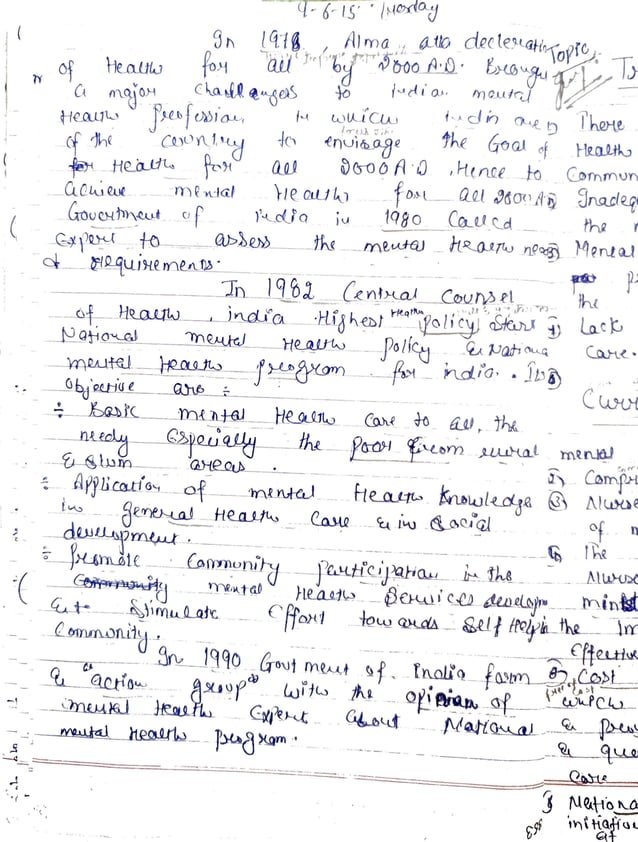 9-6-15. Monday
In 1978, Alma ata decleration
of Health for all by 2000 A.D. Brough
a major Challengers to Indian mental
Health Profession, in which Indin are
of the country to envisage the Goal of
Health for all 2000 A.D, Hence to
achieve mental Health for all 2000 AD
Govertment of india in 1980 Called
Expert to assess the mental Health need
& requirements.
In 1982 Central Counsel
of Health, india Highest Health policy start
National mental Health policy & Nationa
mental Health program for india.
Objective are ÷
÷ Basic mental Health Care to all, the
needy Especially the poor from rural
& Slum areas.
÷ Application of mental Health Knowledge
in general Health Care & in Social
development.
÷ Promote Community participation in the
mental Health Services develop
& to Stimulate Effort towards Self Help in the
Community.
In 1990 Govtment of India form
a "action group" with the opinion of
mental Health Expert about National
mental Health program.
Topic
There
Health
Commun
Inadeq
the
Mental
the
Lack
Care.
Curr
mental
Compr
③ Nurse
of m
The
Nurse
Im
Effective
Cost
which
& prev
& que
Care
Nationa
initiativ